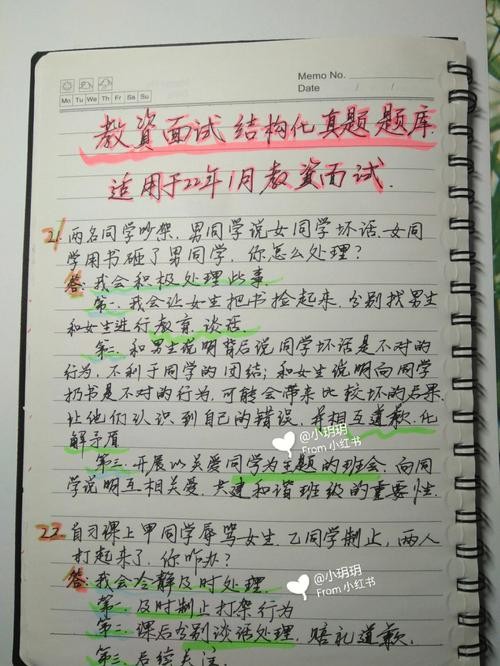 Memo No.
Mo Tu We Th Fr Sa Su
Date / /
教资面试结构化真题题库
适用于22年1月教资面试.
21.两名同学吵架,男同学说女同学坏话.女同
学用书砸了男同学,你怎么处理?
答:我会积极处理此事.
第一.我会让女生把书捡起来,分别找男生
和女生进行教育.谈话.
第二.和男生说明背后说同学坏话是不对的
行为,不利于同学的团结;和女生说明向同学
扔书是不对的行为,可能会带来比较坏的后果.
让他们认识到自己的错误,并相互道歉,化
解矛盾
@小玥玥
From 小红书
第三.开展以关爱同学为主题的班会.向同
学说明互相关爱.共建和谐班级的重要性.
22.自习课上甲同学辱骂女生.乙同学制止,两人
打起来了,你咋办?
答:我会冷静及时处理.
@小玥玥
From 小红书
第一.及时制止打架行为
第二.课后分别谈话处理,赔礼道歉.
第三.后续关注.